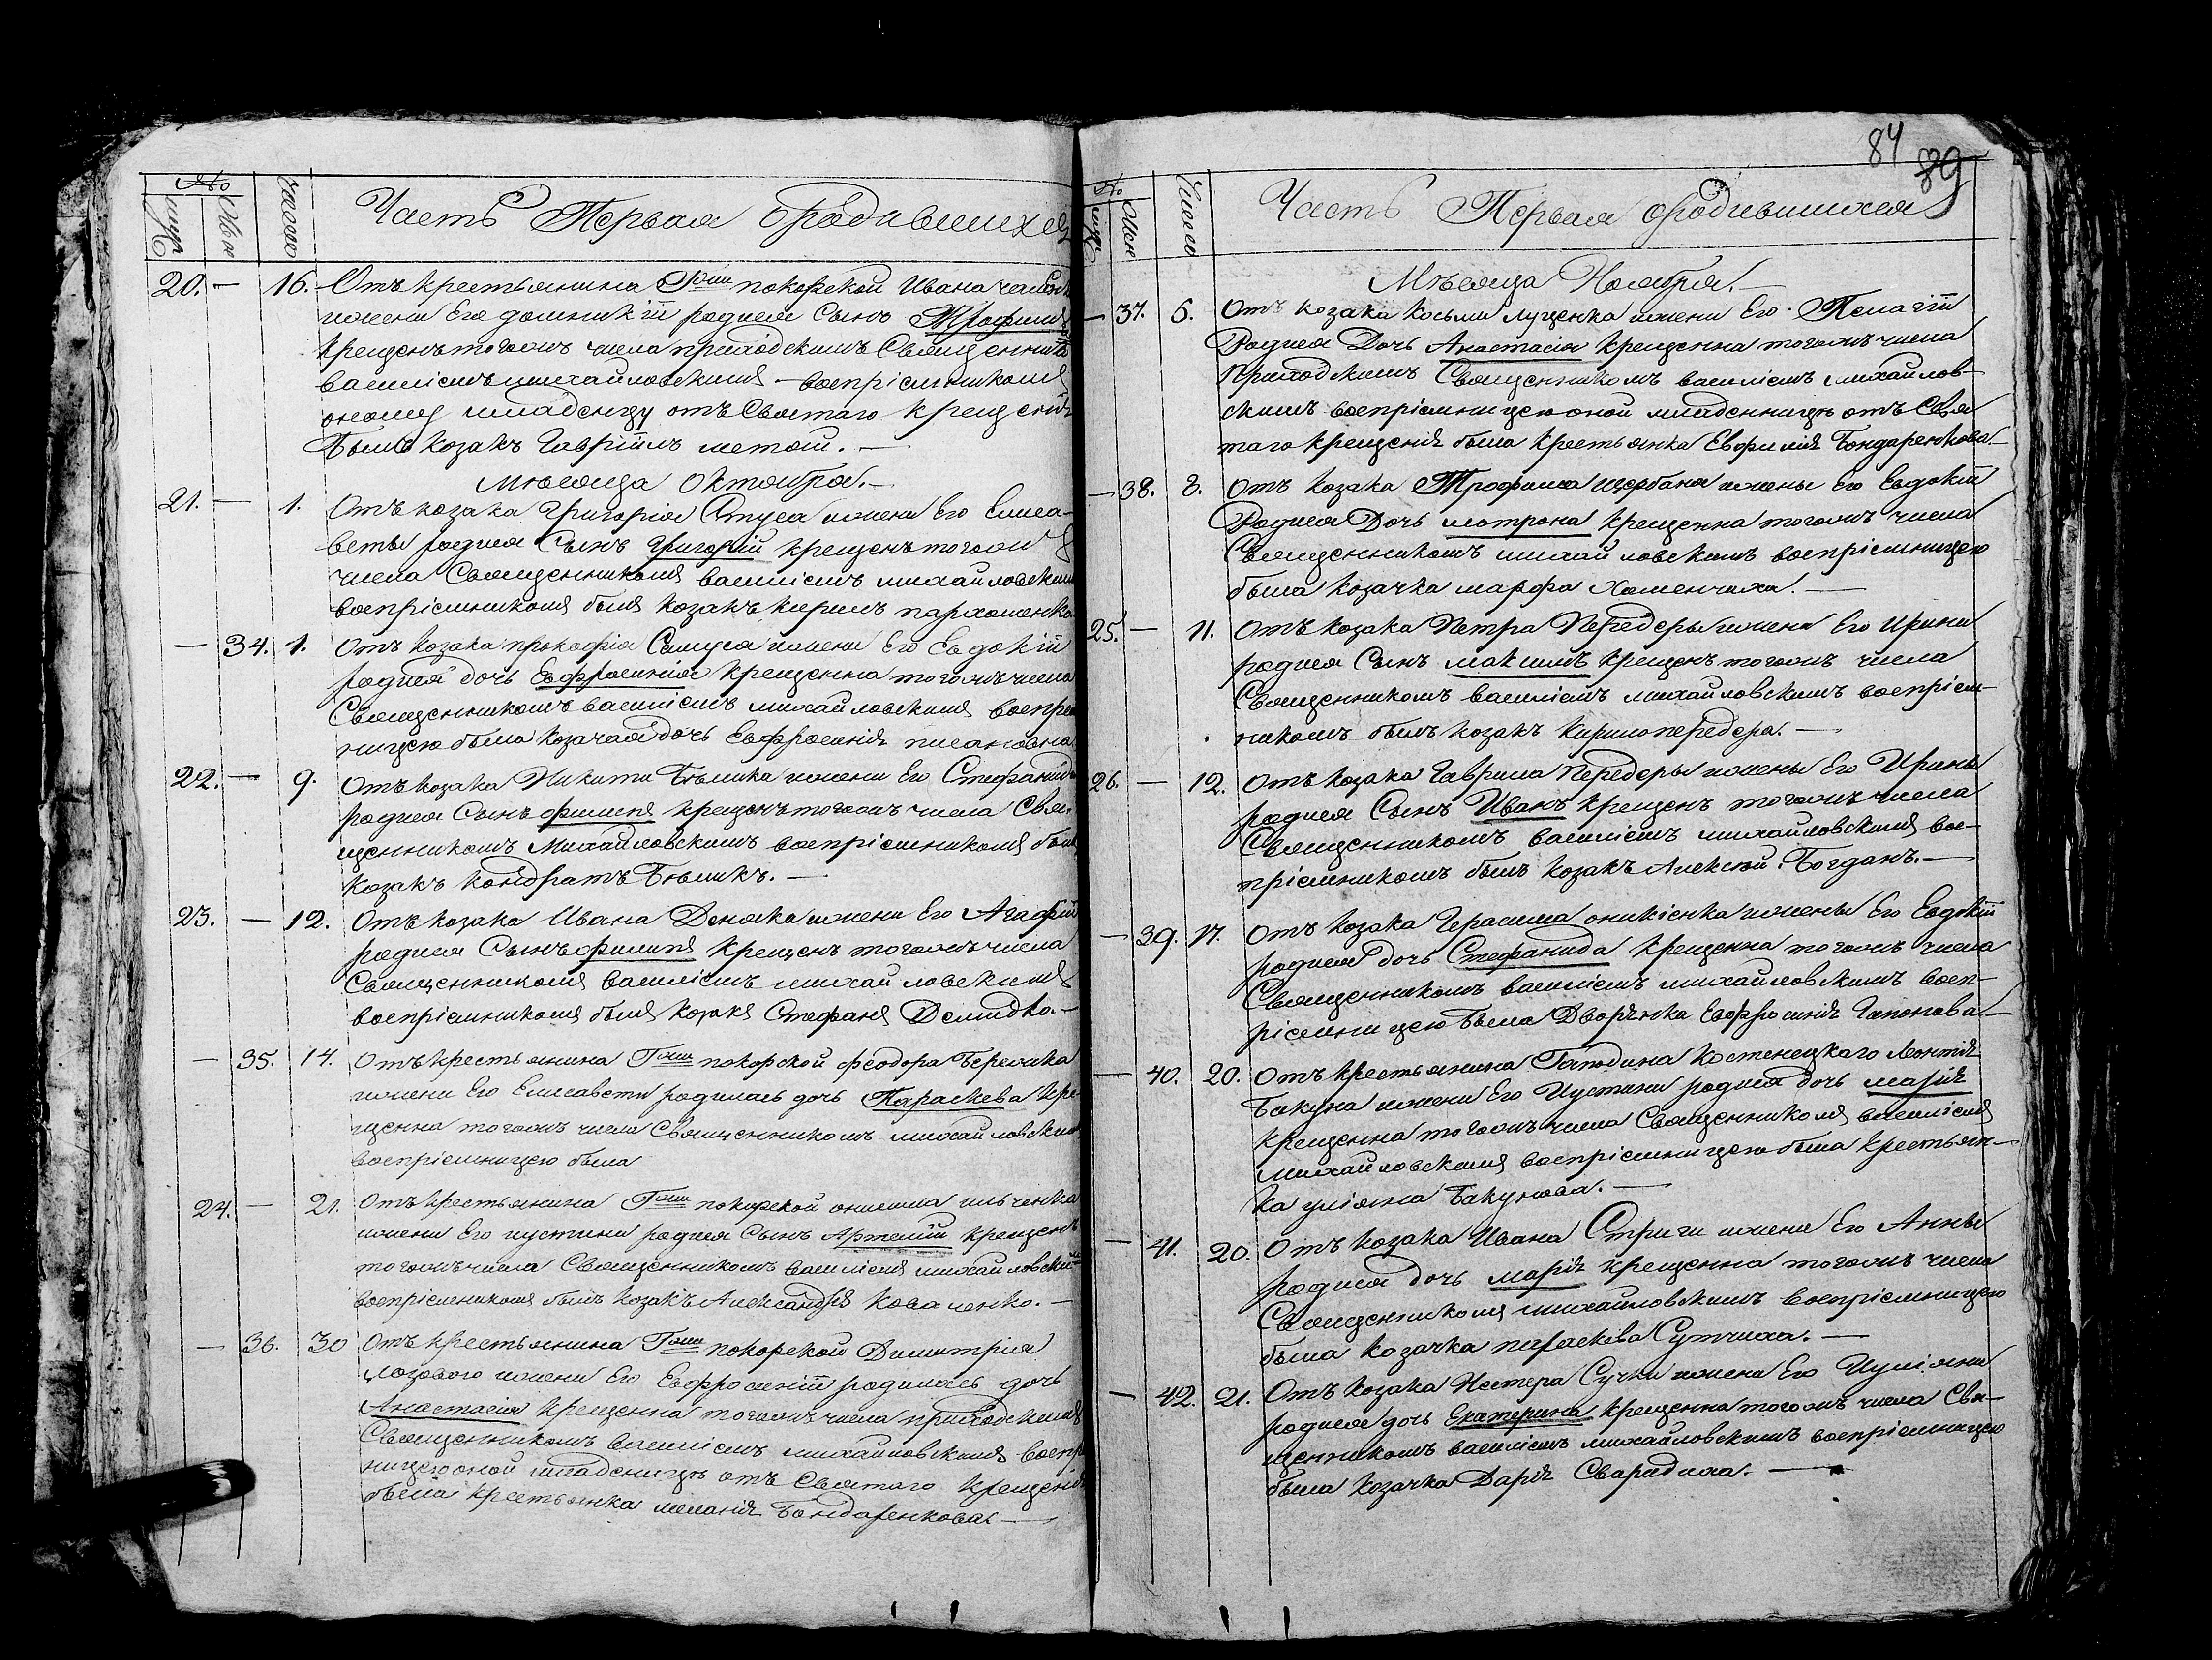 № Число Часть Первая ородившихся
муж жен
20. — 16. Отъ крестьянина Гжи покорской Ивана
жени Его домникіи родися Сынъ Трофимъ
крещенъ тогожъ числа приходскимъ Священникомъ
василіемъ михайловскимъ — воспріемникомъ
оному младенцу отъ Святаго крещенія
былъ козакъ Гавріилъ метой. —
Мѣсяца Октября. —
21. — 1. Отъ козака Григорія Стуса жени Его Елиса-
веты родися Сынъ Григорій крещенъ тогожъ
числа Священникомъ василіемъ михайловскимъ
воспріемникомъ былъ козакъ кирилъ пархоменко
— 34. 1. Отъ козака прокофія жени Его Евдокіи
родися дочь Евфросинія крещенна тогожъ числа
Священникомъ василіемъ михайловскимъ воспріем
ницею была козачая дочь Евфросинія
22. — 9. Отъ козака Никити Бѣлика жени Его Стефаниды
родися Сынъ филипъ крещенъ тогожъ числа Свя-
щенникомъ Михайловскимъ воспріемникомъ былъ
козакъ кондратъ Бѣликъ. —
23. — 12. Отъ козака Ивана Деняка жени Его Агафіи
родися Сынъ филипъ крещенъ тогожъ числа
Священникомъ василіемъ михайловскимъ
воспріемникомъ былъ козакъ Стефанъ Демидко. —
— 35. 14. Отъ крестьянина Гжи покорской феодора Березака
жени Его Елисавети родилась дочь Параскева кре-
щенна тогожъ числа Священникомъ михайловскимъ
воспріемницею была
24. — 21. Отъ крестьянина Гжи покорской онисима ильченка
жени Его иустини родися Сынъ Артемій крещенъ
тогожъ числа Священникомъ василіемъ михайловскимъ
воспріемникомъ былъ козакъ Александръ коваленко. —
— 36. 30 Отъ крестьянина Гжи покорской Димитрія
лозового жени Его Евфросиніи родилась дочь
Анастасія крещенна тогожъ числа приходскимъ
Священникомъ василіемъ михайловскимъ воспр
ницею оной младеницѣ отъ Святаго крещенія
была крестьянка меланія Бондаренкова. —
84 89
№ Число Часть Первая ородившихся
муж жен
Мѣсяца Ноября. —
— 37. 5. Отъ козака косьми луценка жени Его Пелагіи
Родися Дочь Анастасія крещенна тогожъ числа
Приходскимъ Священникомъ василіемъ михайлов-
скимъ воспріемницею оной младенницѣ отъ Свя
таго крещенія была крестьянка Евфимія Бондаренкова. —
— 38. 8. Отъ козака Трофима щербаня жены Его Евдокіи
Родися Дочь мотрона крещенна тогожъ числа
Священникомъ михайловскимъ воспріемницею
была козачка марфа Хоменчиха. —
25. — 11. Отъ козака Петра Передеры жени Его Ирини
родися Сынъ максимъ крещенъ тогожъ числа
Священникомъ василіемъ михайловскимъ воспріем-
никомъ былъ козакъ Кирило передера. —
26. — 12. Отъ козака Гаврила Передеры жены Его Ирины
родися Сынъ Иванъ крещенъ тогожъ числа
Священникомъ василіемъ михайловскимъ вос-
пріемникомъ былъ козакъ Алексій Богданъ. —
— 39. 17. Отъ козака Герасима оникіенка жены Его Евдокіи
родися дочь Стефанида крещенна тогожъ числа
Священникомъ василіемъ михайловскимъ восп-
ріемницею была Дворянка Евфросинія Гапонова —
— 40. 20. Отъ крестьянина Господина Костенецкаго Леонтія
Бакуна жени Его Иустини родися дочь марія
крещенна тогожъ числа Священникомъ василіемъ
михайловскимъ воспріемницею была крестьян-
ка уліяна Бакунова. —
— 41. 20. Отъ козака Ивана Стриги жени Его Анны
родися дочь марія крещенна тогожъ числа
Священникомъ михайловскимъ воспріемницею
была козачка параскева Сутчиха. —
— 42. 21. Отъ козака Нестера Сучки жени Его Иуліяни
родися дочь Екатерина крещенна тогожъ числа Свя-
щенникомъ василіемъ михайловскимъ воспріемницею
была козачка Дарія Сваридиха. —